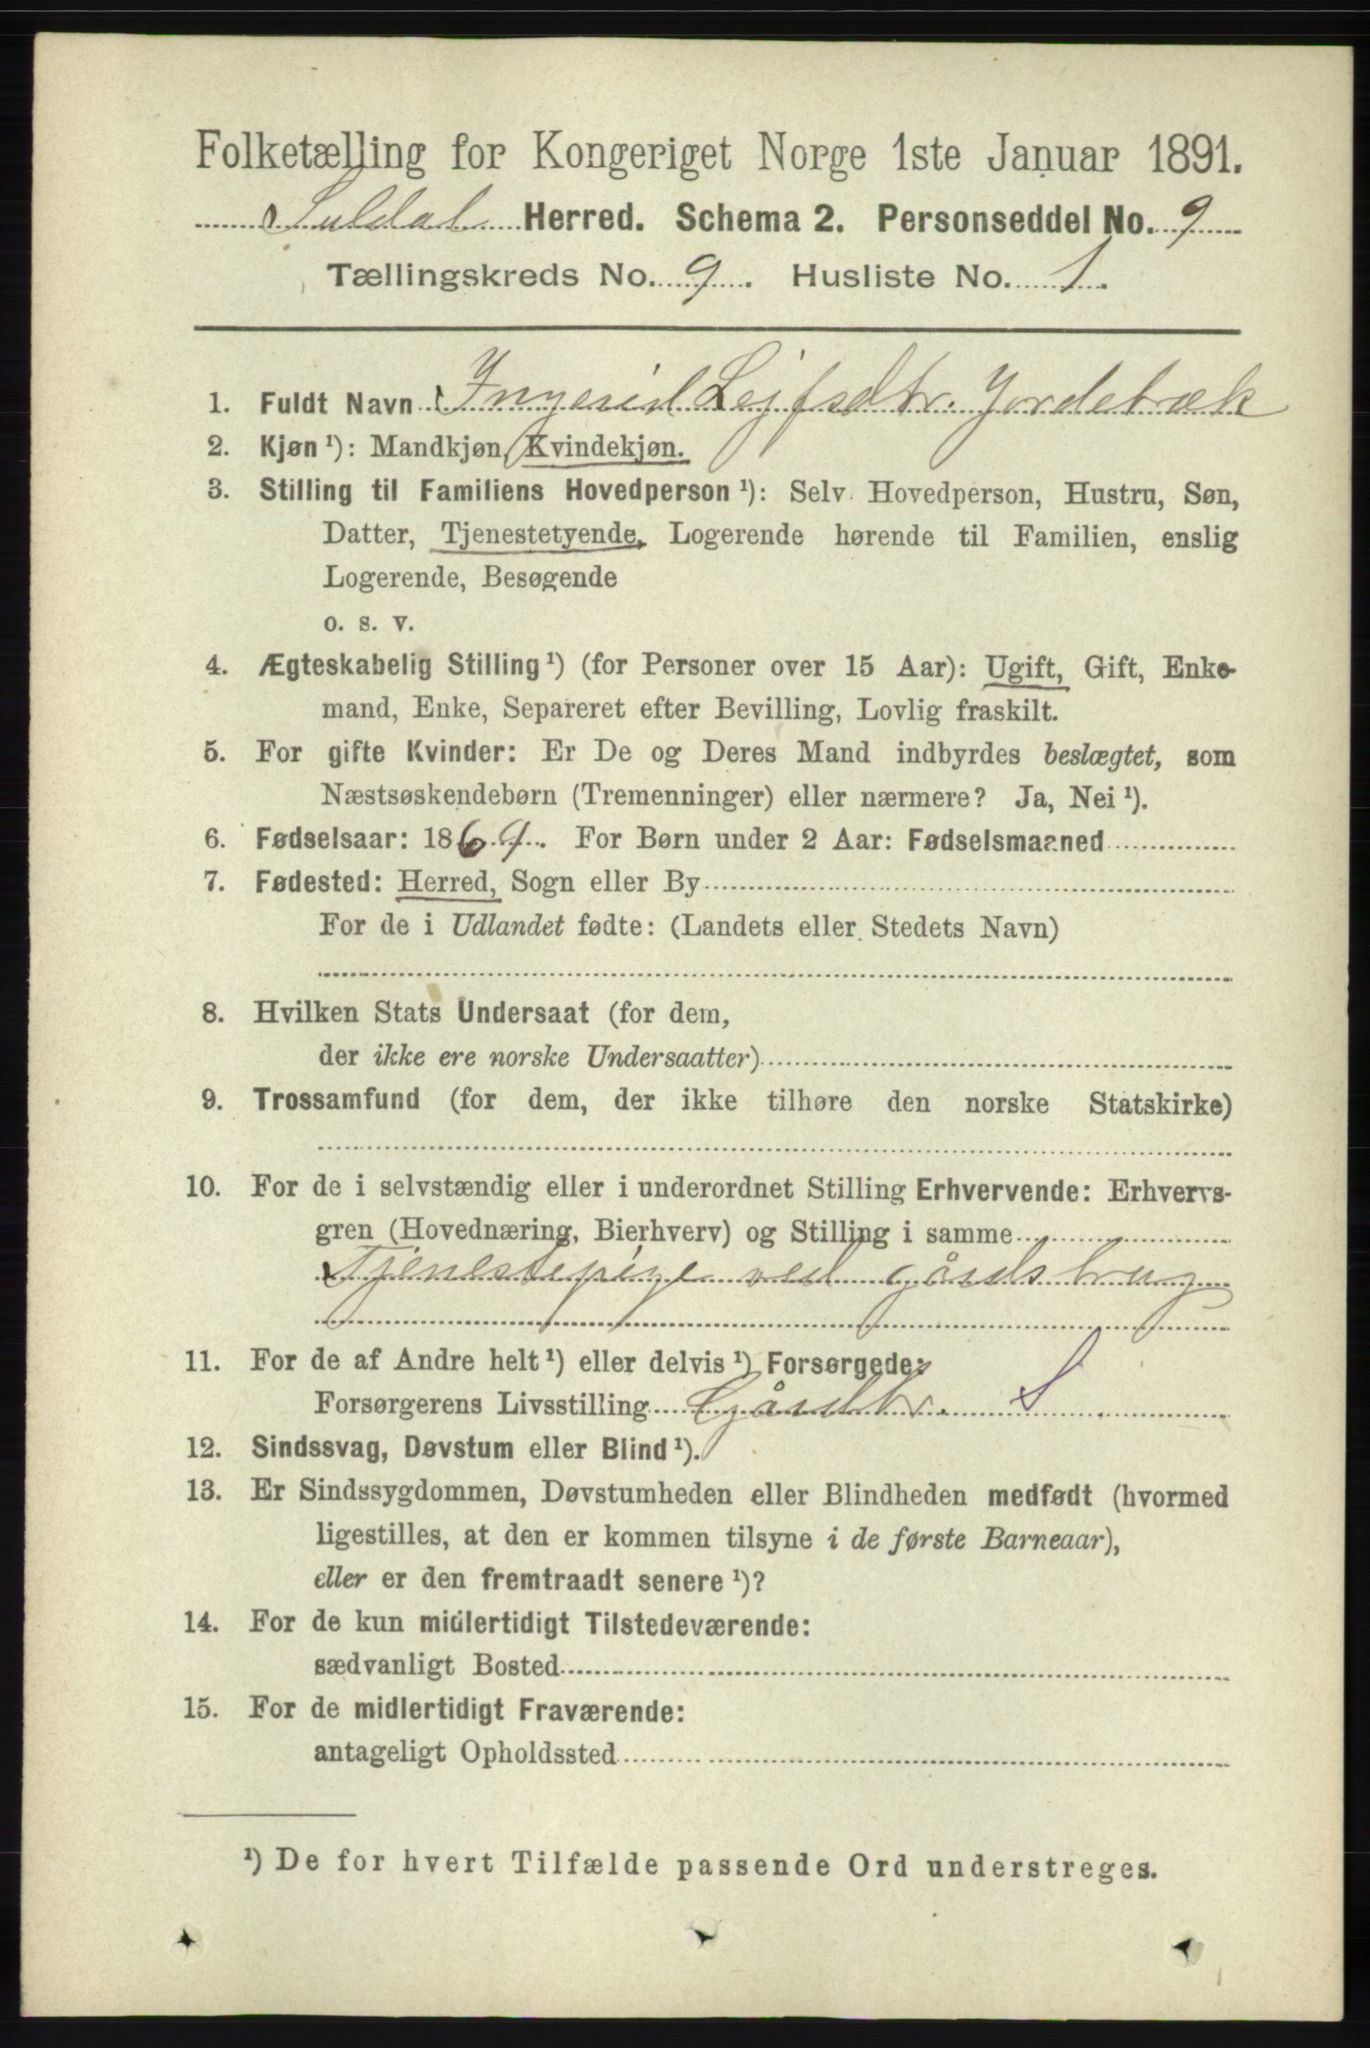 Folketælling for Kongeriget Norge 1ste Januar 1891.
Suldal Herred. Schema 2. Personseddel No. 9
Tællingskreds No. 9. Husliste No. 1.
1. Fuldt Navn Ingerid Lejfsdtr. Jordebræk
2. Kjøn ¹): Mandkjøn, Kvindekjøn.
3. Stilling til Familiens Hovedperson ¹): Selv Hovedperson, Hustru, Søn,
Datter, Tjenestetyende, Logerende hørende til Familien, enslig
Logerende, Besøgende
o. s. v.
4. Ægteskabelig Stilling ¹) (for Personer over 15 Aar): Ugift, Gift, Enke-
mand, Enke, Separeret efter Bevilling, Lovlig fraskilt.
5. For gifte Kvinder: Er De og Deres Mand indbyrdes beslægtet, som
Næstsøskendebørn (Tremenninger) eller nærmere? Ja, Nei ¹).
6. Fødselsaar: 1869. For Børn under 2 Aar: Fødselsmaaned
7. Fødested: Herred, Sogn eller By
For de i Udlandet fødte: (Landets eller Stedets Navn)
8. Hvilken Stats Undersaat (for dem,
der ikke ere norske Undersaatter)
9. Trossamfund (for dem, der ikke tilhøre den norske Statskirke)
10. For de i selvstændig eller i underordnet Stilling Erhvervende: Erhvervs-
gren (Hovednæring, Bierhverv) og Stilling i samme
Tjenestepige ved gårdsbrug
11. For de af Andre helt ¹) eller delvis ¹) Forsørgede:
Forsørgerens Livsstilling Gårdbr. S
12. Sindssvag, Døvstum eller Blind ¹).
13. Er Sindssygdommen, Døvstumheden eller Blindheden medfødt (hvormed
ligestilles, at den er kommen tilsyne i de første Barneaar),
eller er den fremtraadt senere ¹)?
14. For de kun midlertidigt Tilstedeværende:
sædvanligt Bosted
15. For de midlertidigt Fraværende:
antageligt Opholdssted
¹) De for hvert Tilfælde passende Ord understreges.